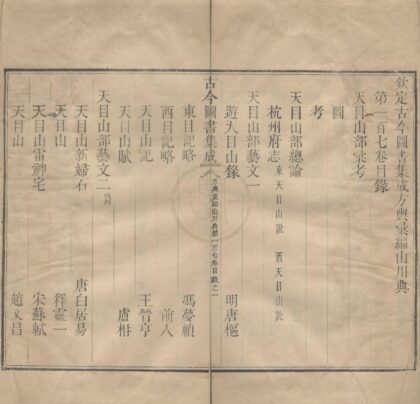 欽定古今圖書集成方輿彙編山川典
第一百七卷目錄
天目山部彙考
圖
考
天目山部總論
杭州府志 東天目山說 西天目山說
天目山部藝文一
遊天目山錄 明唐樞
古今圖書集成 方輿彙編山川典第一百七卷目錄之一
東目記略 馮夢禎
西目記略 前人
天目山記 王晉亨
天目山賦 盧柟
天目山部藝文二 詩詞
天目山新婦石 唐白居易
天目山 釋靈一
天目山雷神宅 宋蘇軾
天目山 趙文昌